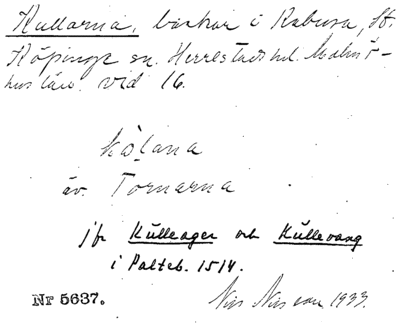 Kullarna, backar i Kabusa, St.
Köpinge sn. Herrestads hd. Malmö-
hus län. vid 16.
kọ̈lana
äv. Tornarna
jfr Kulleager och Kullevang
i Palteb. 1514.
Nr 5637.
Nils Nilsson 1933.